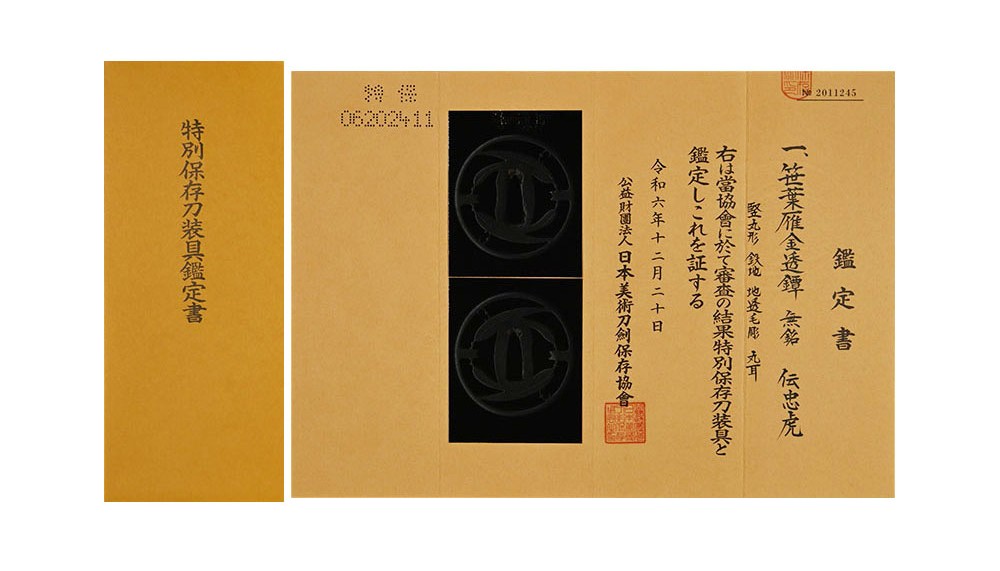 特別保存刀装具鑑定書
№ 2011245
鑑定書
一、笹葉雁金透鐔 無銘 伝忠虎
竪丸形 鉄地 地透毛彫 丸耳
右は當協會に於て審査の結果特別保存刀装具と
鑑定しこれを証する
令和六年十二月二十日
公益財團法人 日本美術刀劍保存協會
特保
06202411